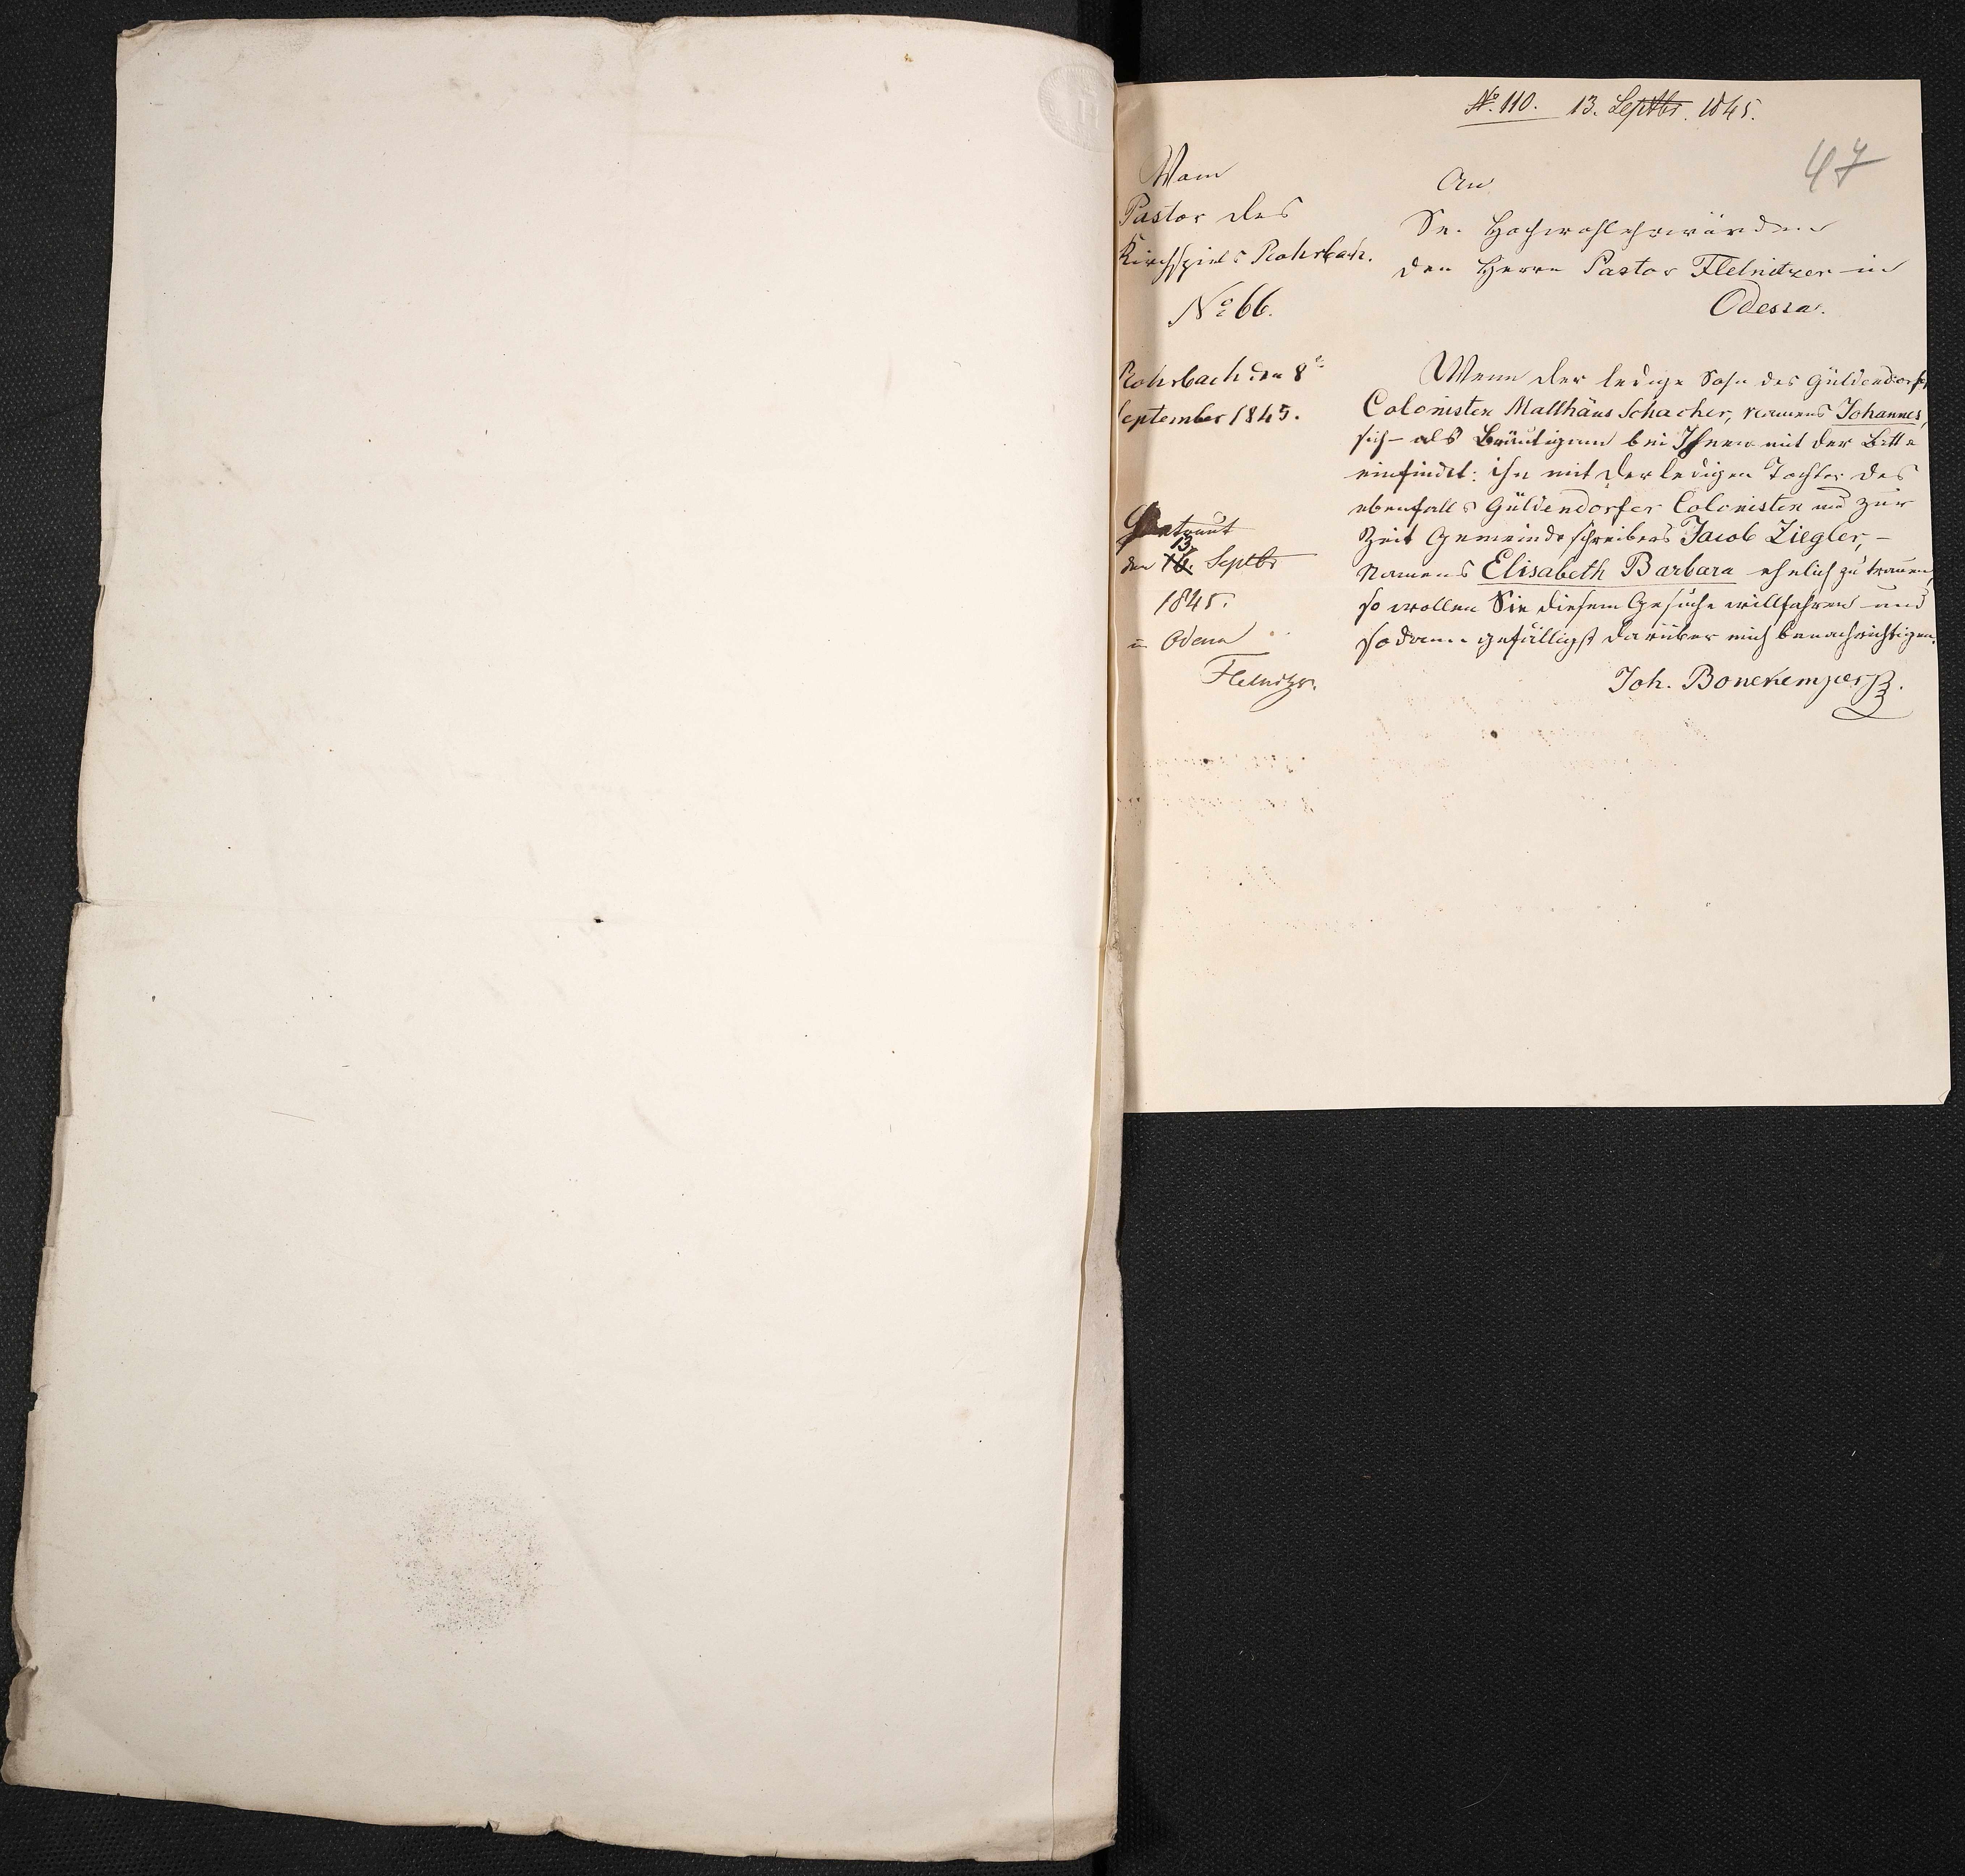 No. 110. 13. Septbr. 1845.
47
Vom
Pastor des
Kirchspiels Rohrbach.
No 66.
Rohrbach den 8n
September 1845.
Getraut
den 13. Septbr
1845.
in Odessa
Fletnitzer.
An
Sr. Hochwohlehrwürden
den Herrn Pastor Fletnitzer in
Odessa.
Wenn der ledige Sohn des Güldendorfer
Colonisten Matthäus Schacher, namens Johannes,
sich als Bräutigam bei Ihnen mit der Bitte
einfindet: ihn mit der ledigen Tochter des
ebenfalls Güldendorfer Colonisten und zur
Zeit Gemeindeschreibers Jacob Ziegler, –
Namens Elisabeth Barbara ehelich zu trauen,
so wollen Sie diesem Gesuche willfahren und
sodann gefälligst darüber mich benachrichtigen.
Joh. Bonekemper